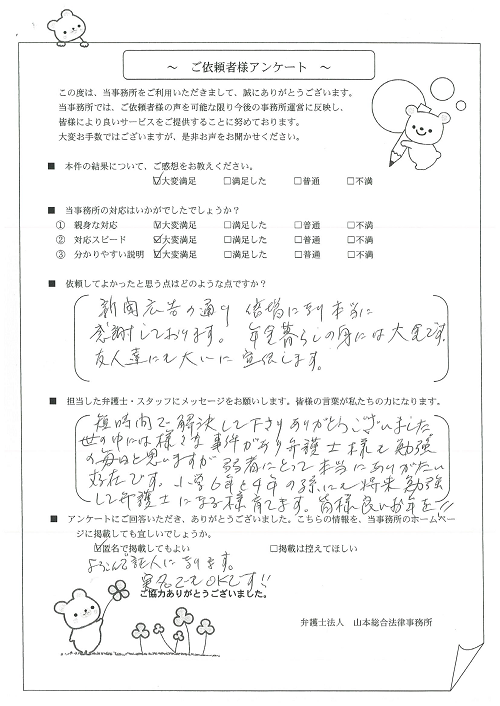 ～ ご依頼者様アンケート ～
この度は、当事務所をご利用いただきまして、誠にありがとうございます。
当事務所では、ご依頼者様の声を可能な限り今後の事務所運営に反映し、
皆様により良いサービスをご提供することに努めております。
大変お手数ではございますが、是非お声をお聞かせください。
■ 本件の結果について、ご感想をお教えください。
☑大変満足 □満足した □普通 □不満
■ 当事務所の対応はいかがでしたでしょうか？
① 親身な対応 ☑大変満足 □満足した □普通 □不満
② 対応スピード ☑大変満足 □満足した □普通 □不満
③ 分かりやすい説明 ☑大変満足 □満足した □普通 □不満
■ 依頼してよかったと思う点はどのような点ですか？
新聞広告の通り 倍増になり本当に
感謝しております。 年金暮らしの身には大金です。
友人達にも大いに宣伝します。
■ 担当した弁護士・スタッフにメッセージをお願いします。皆様の言葉が私たちの力になります。
短時間で解決して下さりありがとうございました
世の中には様々な事件があり弁護士様も勉強
の毎日と思いますが弱者にとって本当にありがたい
存在です。小学6年と4年の孫にも将来勉強
して弁護士になる様育てます。皆様良いお年を!!
■ アンケートにご回答いただき、ありがとうございました。こちらの情報を、当事務所のホームペー
ジに掲載しても宜しいでしょうか。
☑匿名で掲載してもよい □掲載は控えてほしい
よろこんで証人になります。
実名でもOKです!!
ご協力ありがとうございました。
弁護士法人 山本総合法律事務所